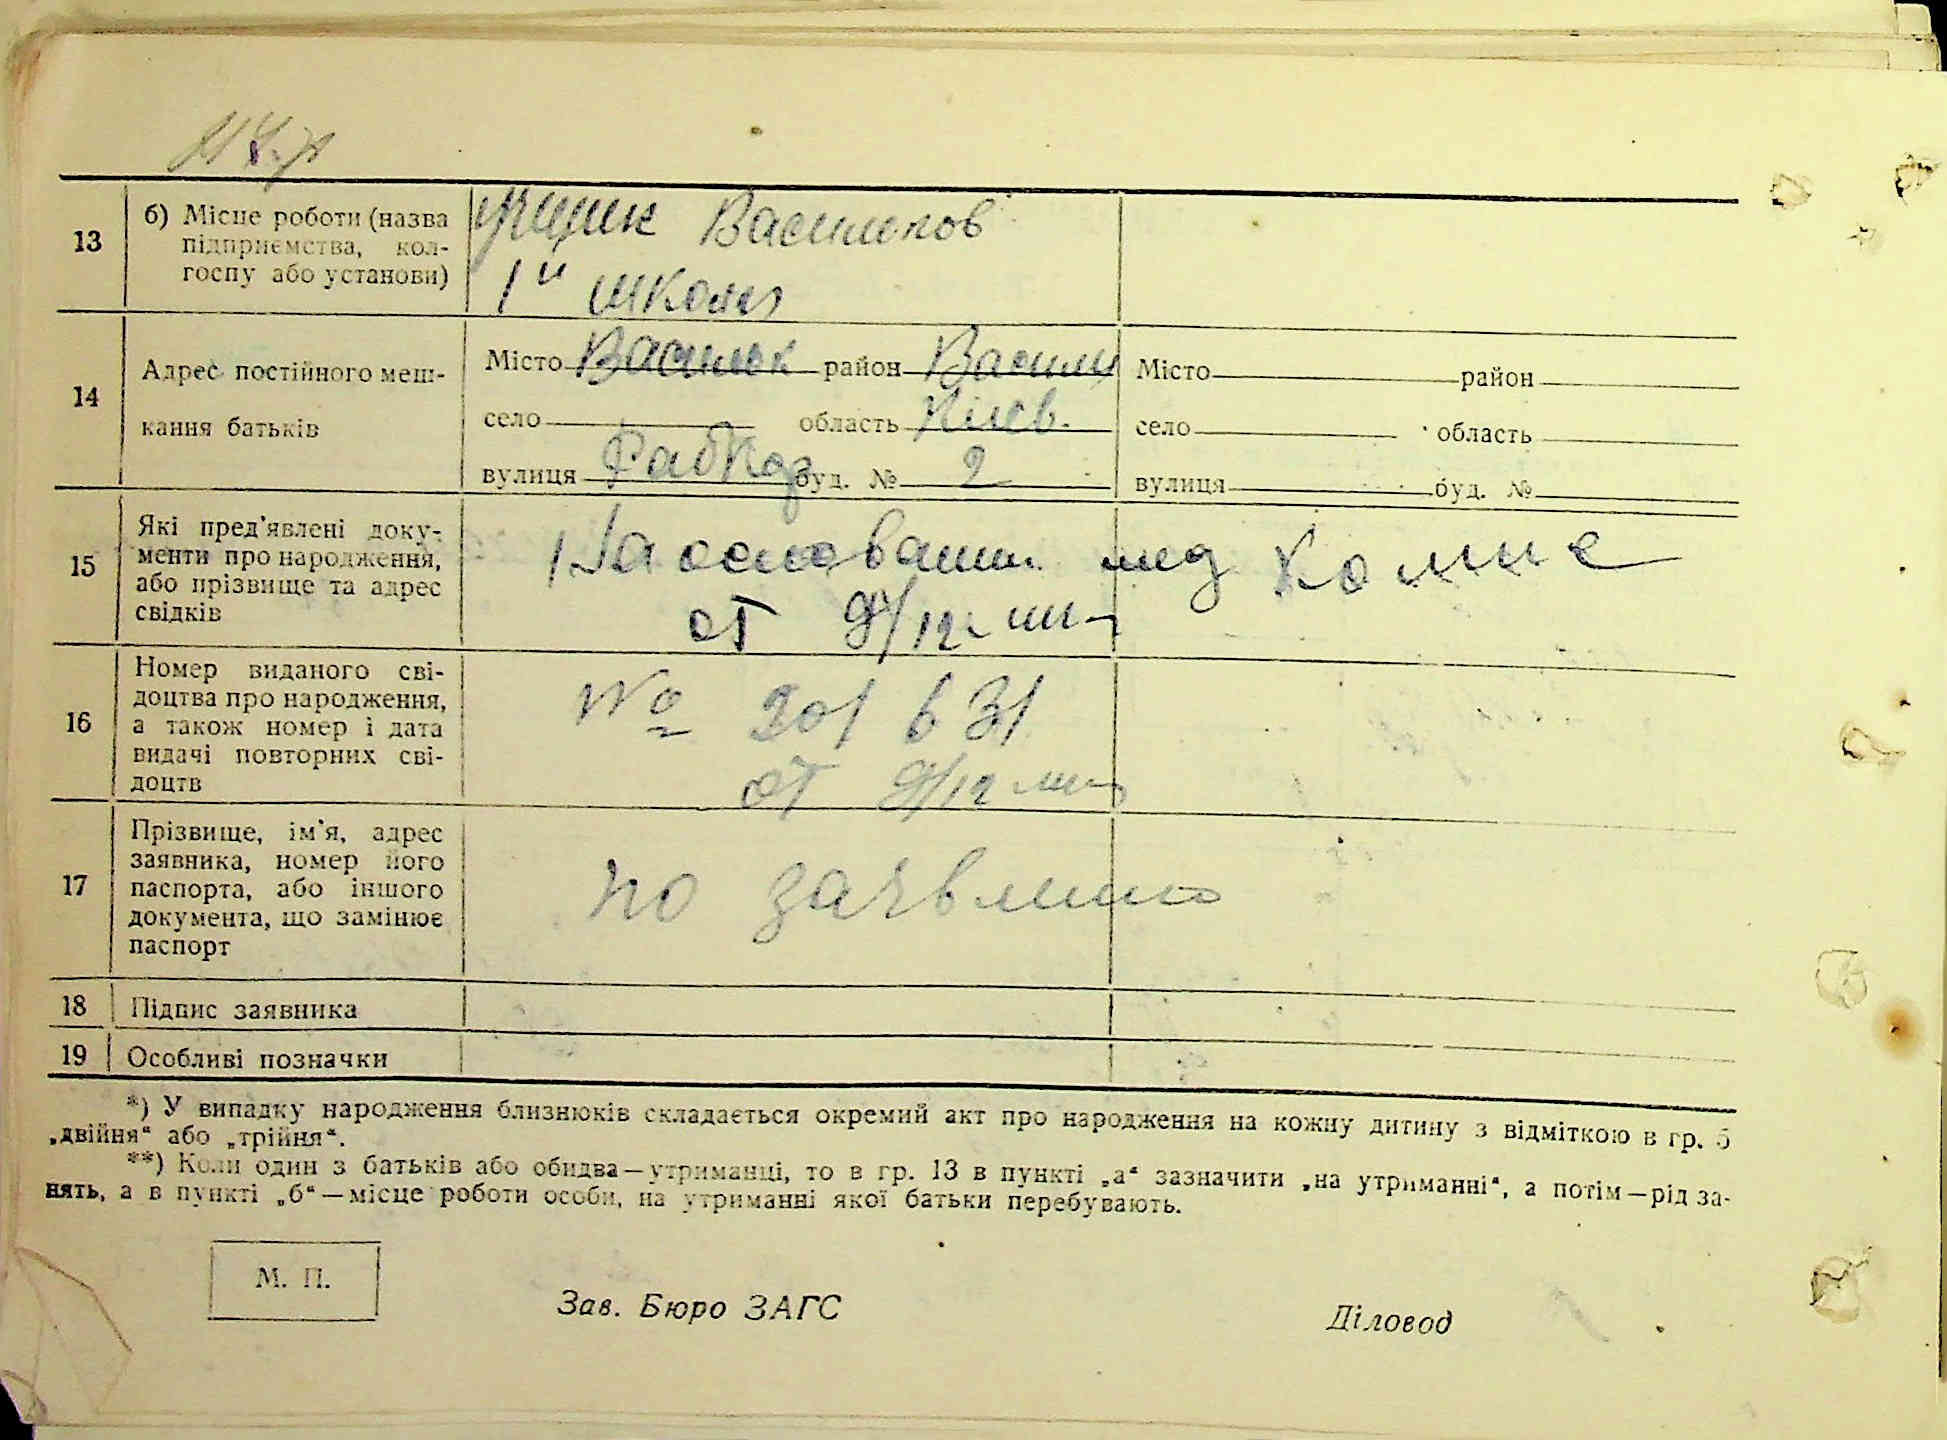 13
б) Місце роботи (назва
підприємства, кол-
госпу або установи)
Василиков
1й школы
14
Адрес постійного меш-
кання батьків
Місто Васильк район Васильк
село область Київ.
вулиця буд. № 2
Місто район
село область
вулиця буд. №
15
Які пред'явлені доку-
менти про народження,
або прізвище та адрес
свідків
На основании мед комис
от 9/12
16
Номер виданого сві-
доцтва про народження,
а також номер і дата
видачі повторних сві-
доцтв
№ 201631
от 9/12
17
Прізвище, ім'я, адрес
заявника, номер його
паспорта, або іншого
документа, що замінює
паспорт
по заявлению
18 Підпис заявника
19 Особливі позначки
*) У випадку народження близнюків складається окремий акт про народження на кожну дитину з відміткою в гр. 5
„двійня“ або „трійня“.
**) Коли один з батьків або обидва—утриманці, то в гр. 13 в пункті „а“ зазначити „на утриманні“, а потім—рід за-
нять, а в пункті „б“—місце роботи особи, на утриманні якої батьки перебувають.
М. П.
Зав. Бюро ЗАГС
Діловод